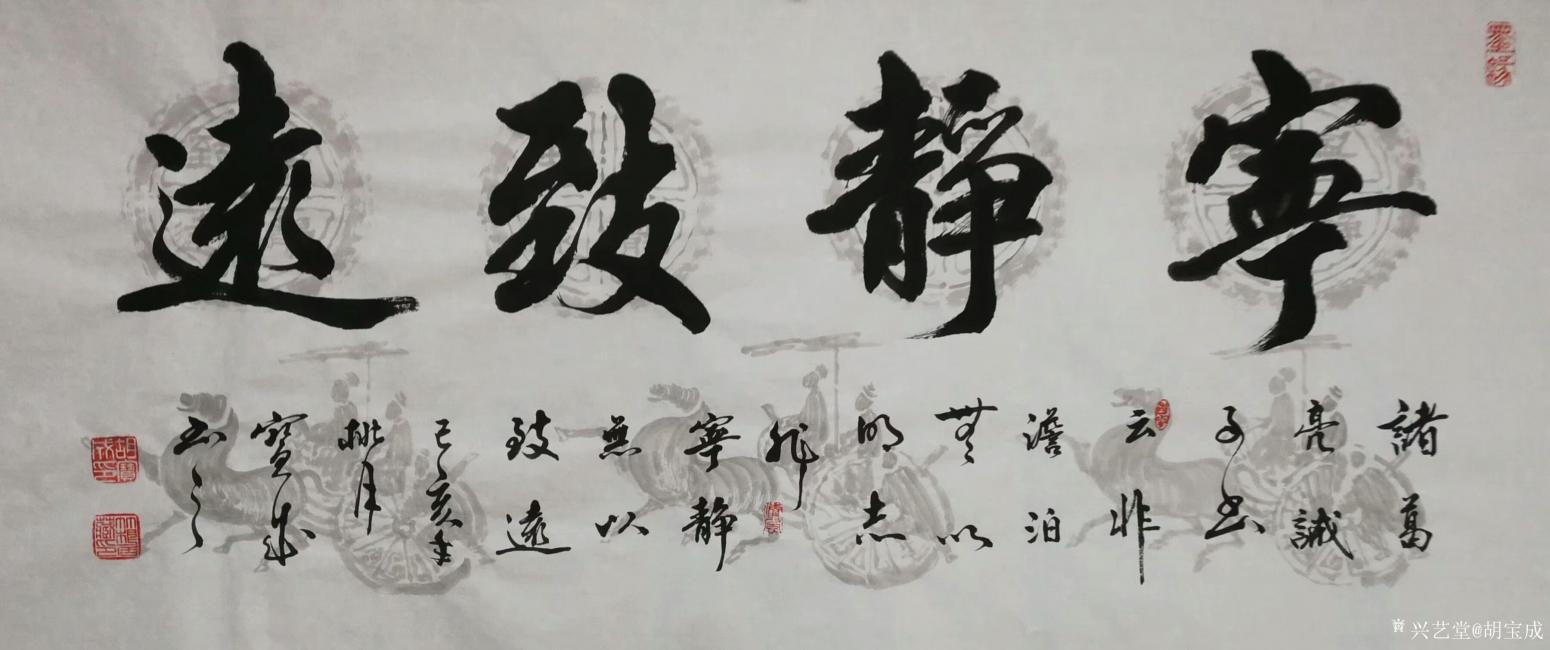 寧靜致遠
諸葛
亮誡
子書
云非
澹泊
無以
明志
非
寧静
無以
致遠
己亥年
桃月
寶成
書之
胡寶成印
兴艺堂@胡宝成